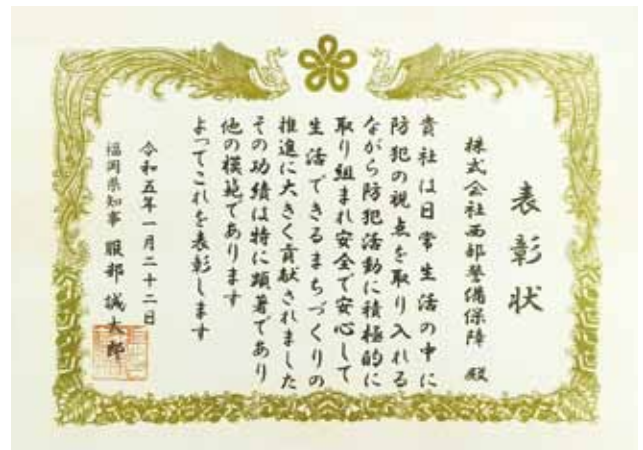 表彰状
株式会社西部警備保障 殿
貴社は日常生活の中に
防犯の視点を取り入れる
ながら防犯活動に積極的に
取り組まれ安全で安心して
生活できるまちづくりの
推進に大きく貢献されました
その功績は特に顕著であり
他の模範であります
よってこれを表彰します
令和五年一月二十二日
福岡県知事 服部誠太郎